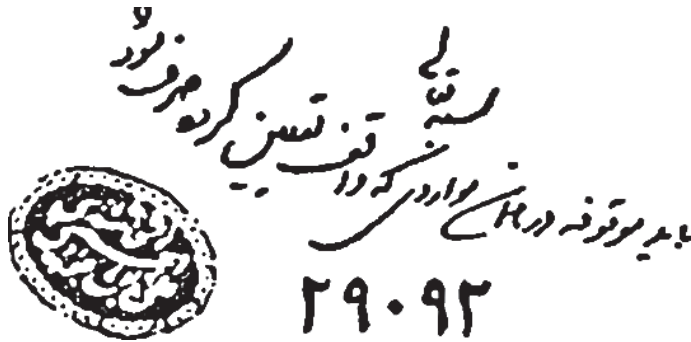 باید موقوفه در همان مواردی که واقف تعیین کرده صرف شود
۲۹۰۹۳